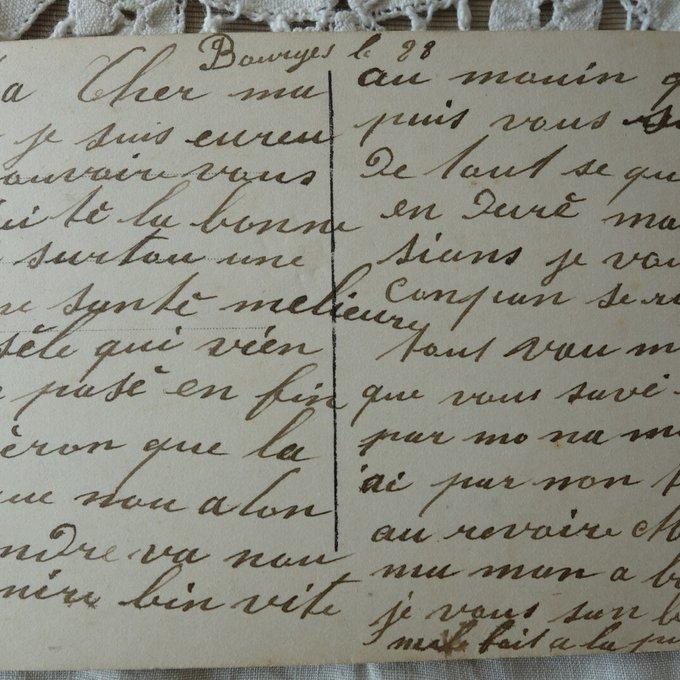 Bourges le 28
a Cher ma
je suis eureu
ouvaire vous
itè la bonne
surtou une
ne santè melieure
sèle qui vien
pasé en fin
èron que la
ue nou alon
ndre va nou
nire bin vite
au mouin q
puis vous
De tout se qu
en Durê ma
sians je vou
Conpan se
tout vou m
que vous savé
par mo na m
ai par non
au revoire
ma man a b
je vous san